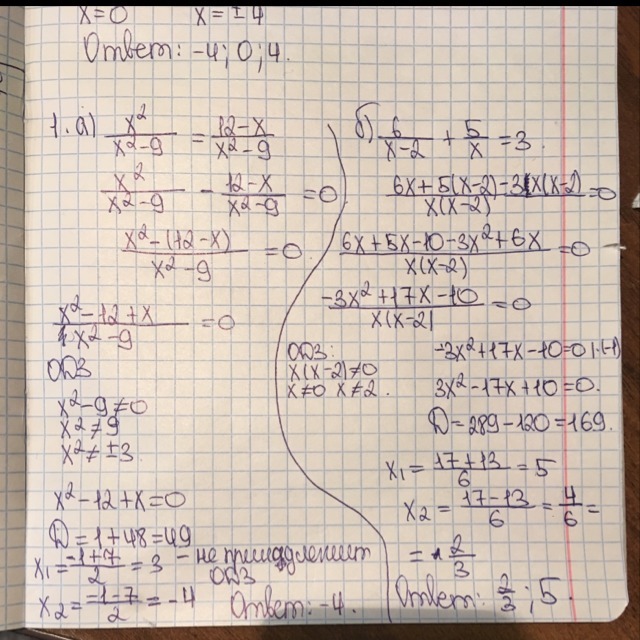 x=0 x=±4
Ответ: -4; 0; 4.
1. а) x²/(x²-9) = (12-x)/(x²-9)
x²/(x²-9) - (12-x)/(x²-9) = 0
(x²-(12-x))/(x²-9) = 0
(x²-12+x)/(x²-9) = 0
ОДЗ
x²-9≠0
x²≠9
x²≠±3
x²-12+x=0
D=1+48=49
x₁=(-1+7)/2=3 - не принадлежит ОДЗ
x₂=(-1-7)/2=-4 Ответ: -4.
б) 6/(x-2) + 5/x = 3.
(6x+5(x-2)-3x(x-2))/(x(x-2))=0
(6x+5x-10-3x²+6x)/(x(x-2))=0
(-3x²+17x-10)/(x(x-2)=0
ОДЗ:
x(x-2)≠0
x≠0 x≠2.
-3x²+17x-10=0 |·(-1)
3x²-17x+10=0.
D=289-120=169.
x₁=(17+13)/6=5
x₂=(17-13)/6=4/6=
=2/3
Ответ: 2/3; 5.